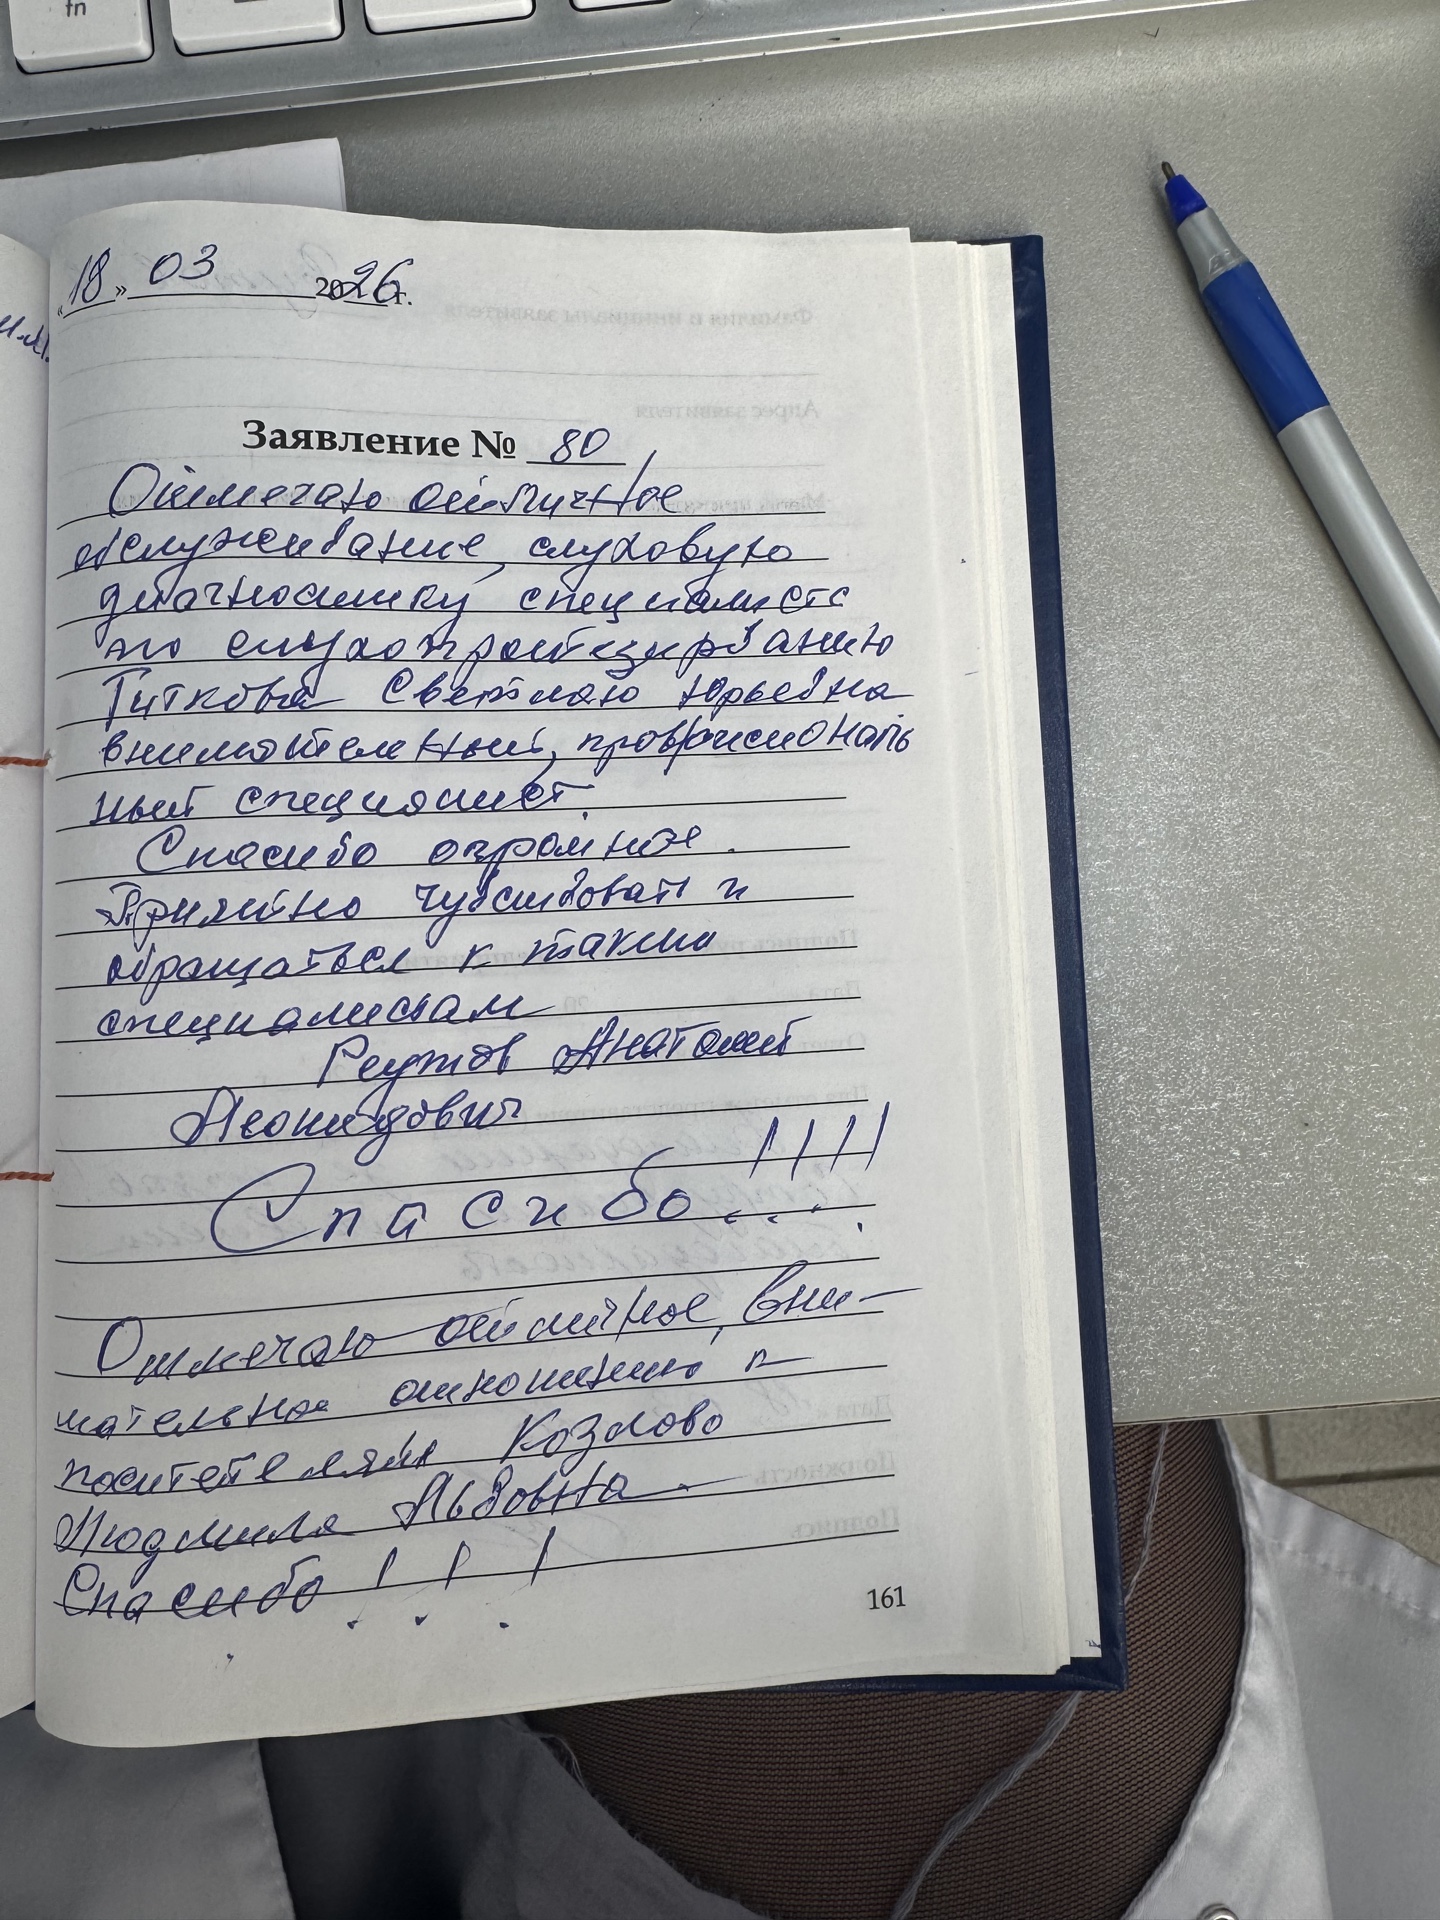 fn
«18» 03 2026 г.
Заявление № 80
Отмечаю отличное
обслуживание, слуховую
диагностику специалиста
по слухопротезированию
Титкова Светлаю Юрьевна
внимательный, профрисиональ
ный специалист.
Спасибо огромное.
Приятно чувствовать и
обращаться к таким
специалистам
Реутов Анатолий
Леонидович
Спасибо....!!!!
Отмечаю отличное, вни-
мательное отношению к
посетителям Козлово
Людмила Львовна.
Спасибо!!!
161